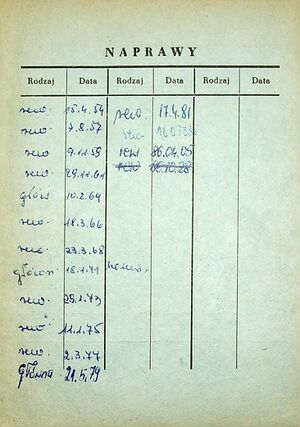 NAPRAWY
Rodzaj Data Rodzaj Data Rodzaj Data
rew. 15.4.54 rew. 17.4.81
rew. 7.8.57 rew.
rew 9.11.59 rew 86.04.05
rew 29.11.61 rew 86.10.28
główn. 10.2.64
rew. 18.3.66
rew. 23.3.68
główna 18.1.71
rew. 29.1.73
rew. 11.1.75
rew 2.3.77
Główna 21.5.79